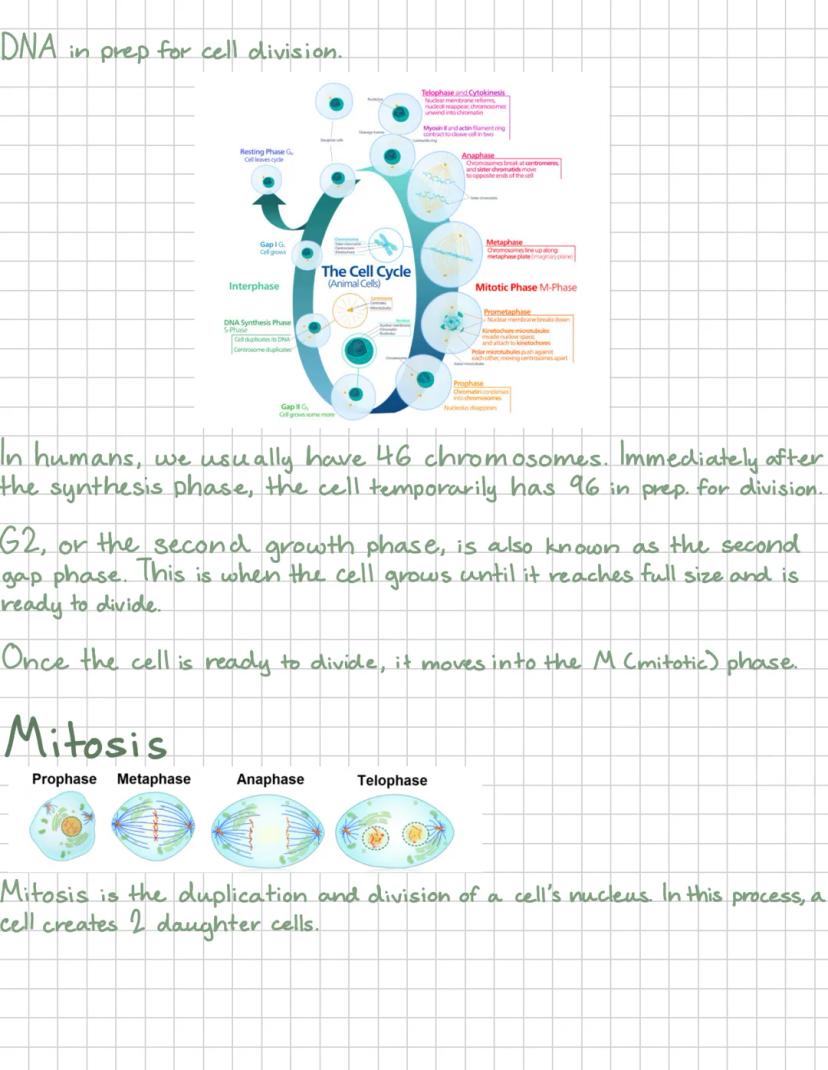 DNA in prep for cell division.
Telophase and Cytokinesis
Nuclear membrane reforms,
nucleoli reappear, chromosomes
unwind into chromatin
Myosin II and actin filament ring
contract to cleave cell in two
Resting Phase G₀
Cell leaves cycle
Anaphase
Chromosomes break at centromeres,
and sister chromatids move
to opposite ends of the cell
Gap I G₁
Cell grows
Metaphase
Chromosomes line up along
metaphase plate (imaginary plane)
The Cell Cycle
(Animal Cells)
Interphase
Mitotic Phase M-Phase
DNA Synthesis Phase
S-Phase
Cell duplicates its DNA
Centrosome duplicates
Prometaphase
Nuclear membrane breaks down
Kinetochore microtubules
invade nuclear space,
and attach to kinetochores
Polar microtubules push against
each other, moving centrosomes apart
Prophase
Chromatin condenses
into chromosomes
Nucleolus disappears
Gap II G₂
Cell grows some more
In humans, we usually have 46 chromosomes. Immediately after
the synthesis phase, the cell temporarily has 96 in prep. for division.
G2, or the second growth phase, is also known as the second
gap phase. This is when the cell grows until it reaches full size and is
ready to divide.
Once the cell is ready to divide, it moves into the M (mitotic) phase.
Mitosis
Prophase Metaphase Anaphase Telophase
Mitosis is the duplication and division of a cell's nucleus. In this process, a
cell creates 2 daughter cells.